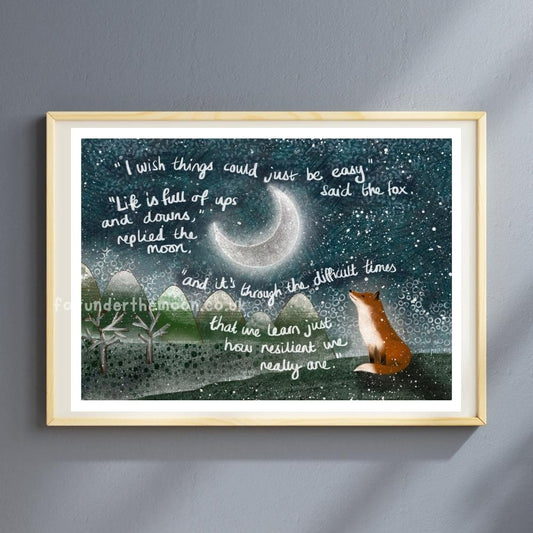 "I wish things could just be easy"
said the fox.
"Life is full of ups
and downs,"
replied the
moon,
"and it's through the difficult times
that we learn just
how resilient we
really are."
foxunderthemoon.co.uk